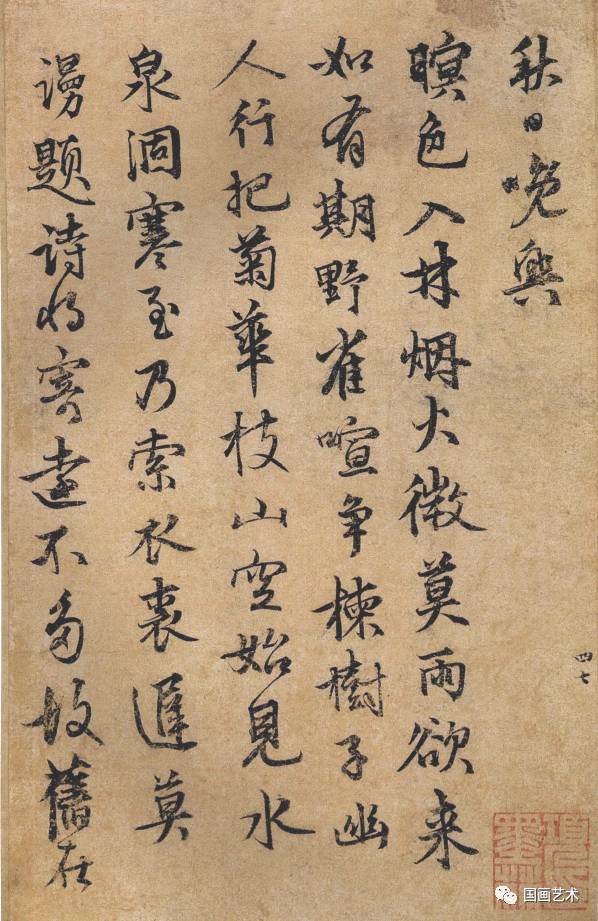 秋日晚興
暝色入林烟火微莫雨欲来
如有期野雀喧争楝樹子幽
人行把菊華枝山空始見水
泉涸寒至乃索衣裘遲莫
謾題诗将寄遠不多故舊在
四七
国画艺术